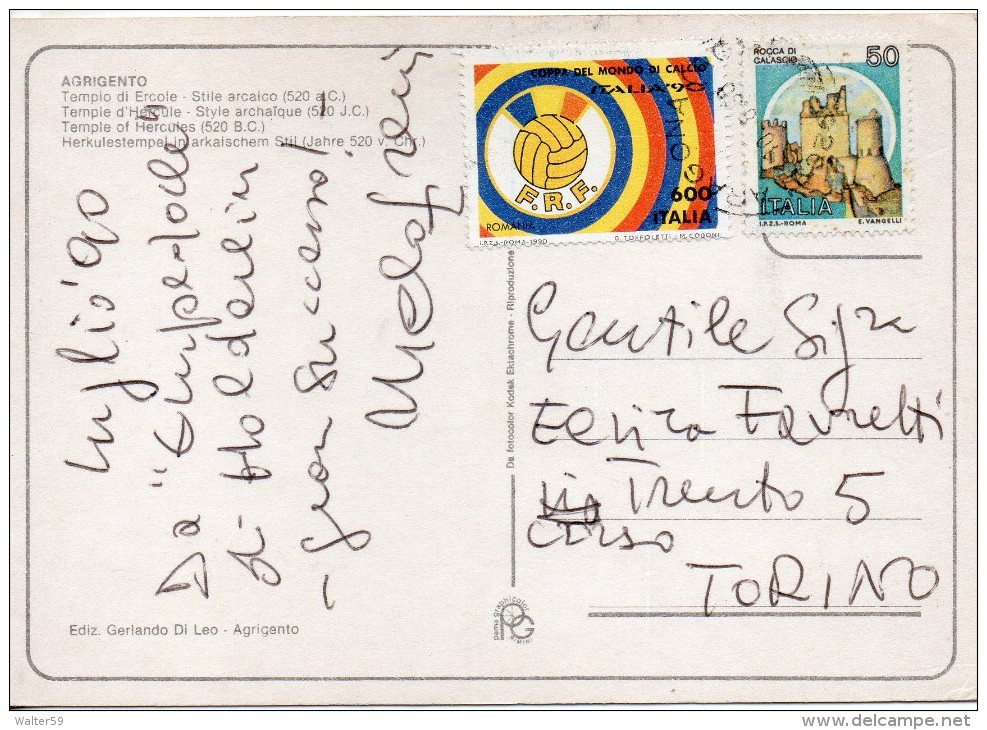 AGRIGENTO
Tempio di Ercole - Stile arcaico (520 a.C.)
Temple d'Hercule - Style archaïque (520 J.C.)
Temple of Hercules (520 B.C.)
Herkulestempel in arkaischem Stil (Jahre 520 v. Chr.)
Luglio '90
Da "Empedocle"
di Holderlin
- gran successo!
COPPA DEL MONDO DI CALCIO
ITALIA '90
F.R.F.
ROMANIA
600
ITALIA
I.P.Z.S.-ROMA-1990
G. TOFFOLETTI - M. CODONI
ROCCA DI
CALASCIO
50
ITALIA
I.P.Z.S.-ROMA
E. VANGELLI
Gentile Sig.ra
Favretti
via Trento 5
corso
TORINO
Da fotocolor Kodak Ektachrome - Riproduzione
pama graphicolor
RIMINI
Ediz. Gerlando Di Leo - Agrigento
Walter59
www.delcampe.net